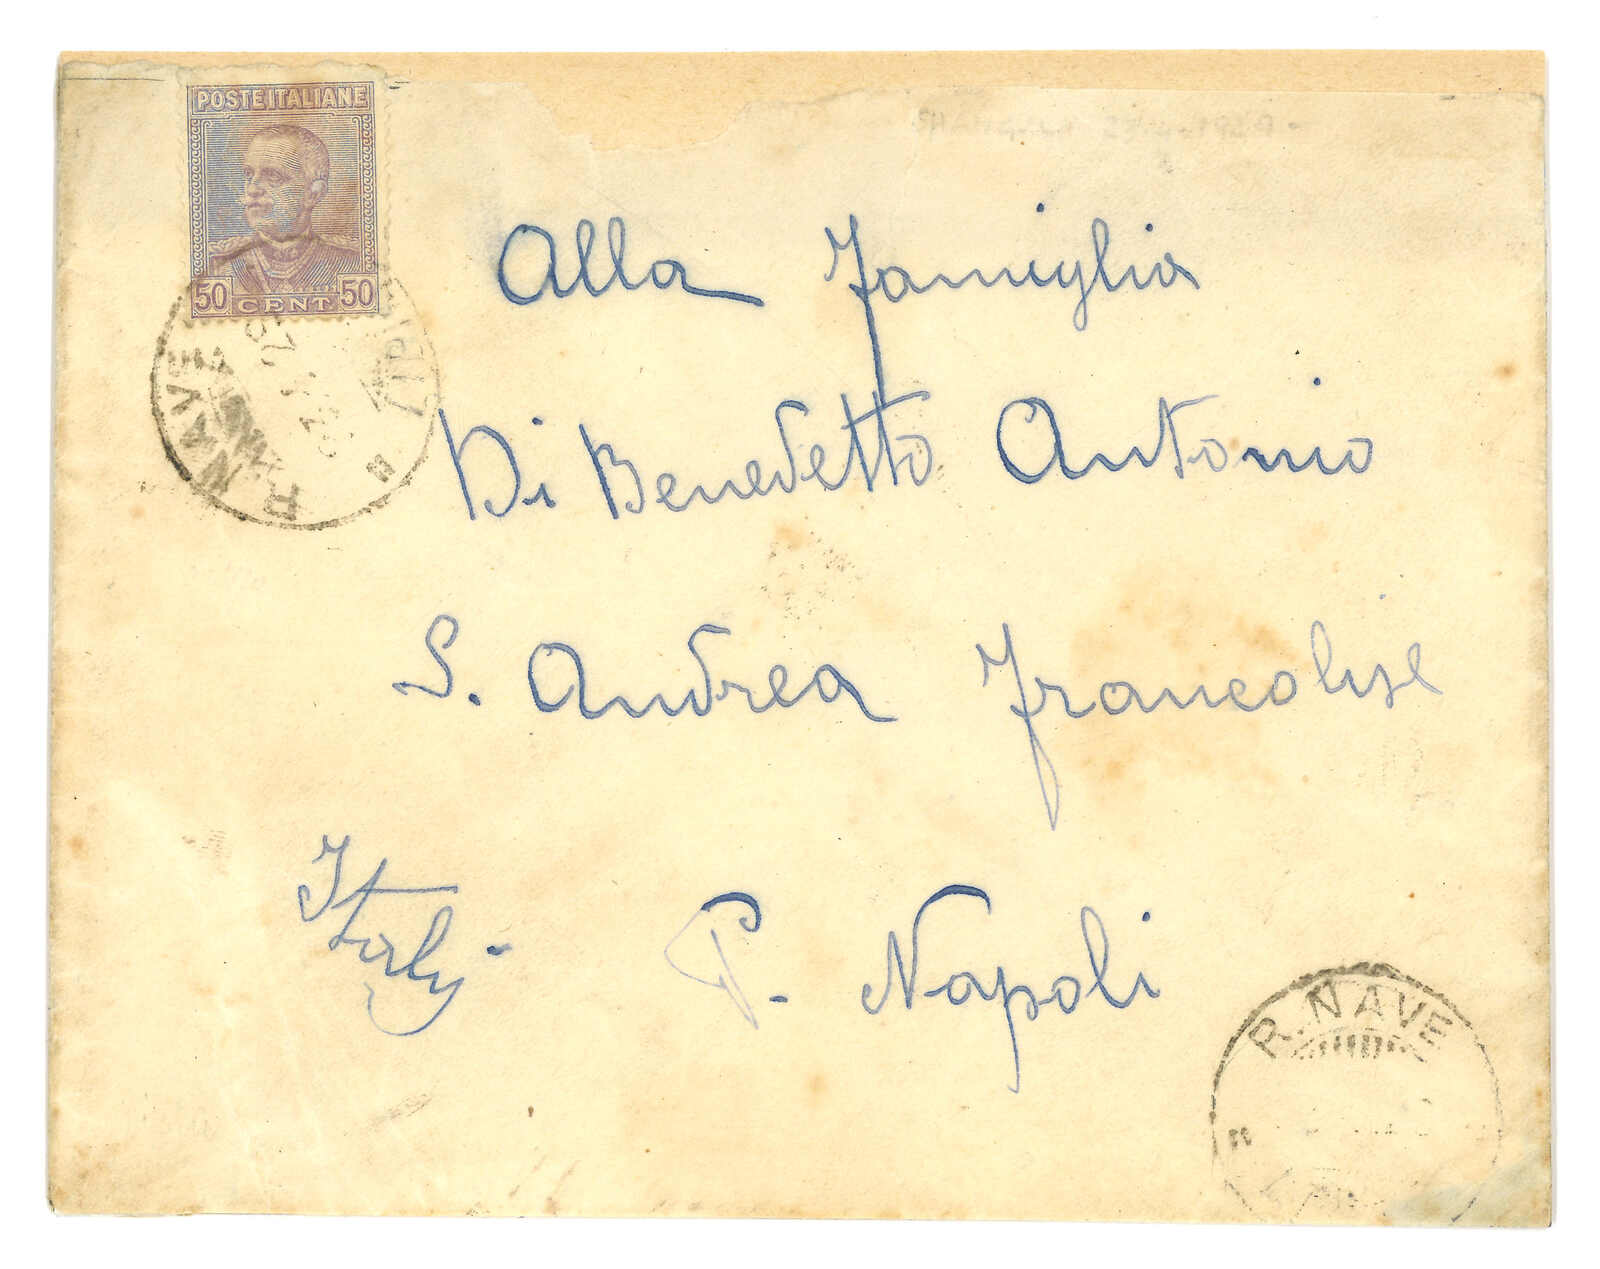 POSTE ITALIANE
50 CENT 50
R. NAVE
Alla Famiglia
Di Benedetto Antonio
S. Andrea Francolise
Italy.
P. Napoli
R. NAVE